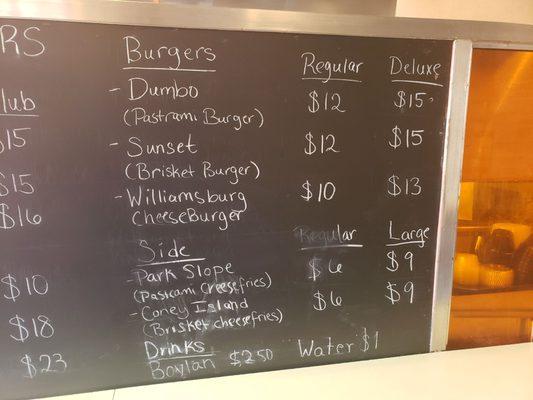 RS
Burgers Regular Deluxe
lub - Dumbo $12 $15
$15 (Pastrami Burger)
- Sunset $12 $15
$15 (Brisket Burger)
$16 - Williamsburg $10 $13
CheeseBurger
Side Regular Large
$10 - Park Slope $6 $9
(Pastrami cheesefries)
$18 - Coney Island $6 $9
(Brisket cheesefries)
$23 Drinks
Boylan $2.50 Water $1